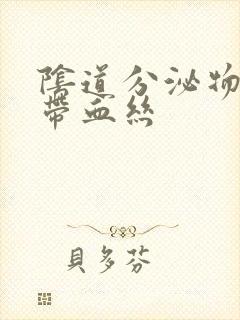 陰道分泌物
帶血絲
貝多芬